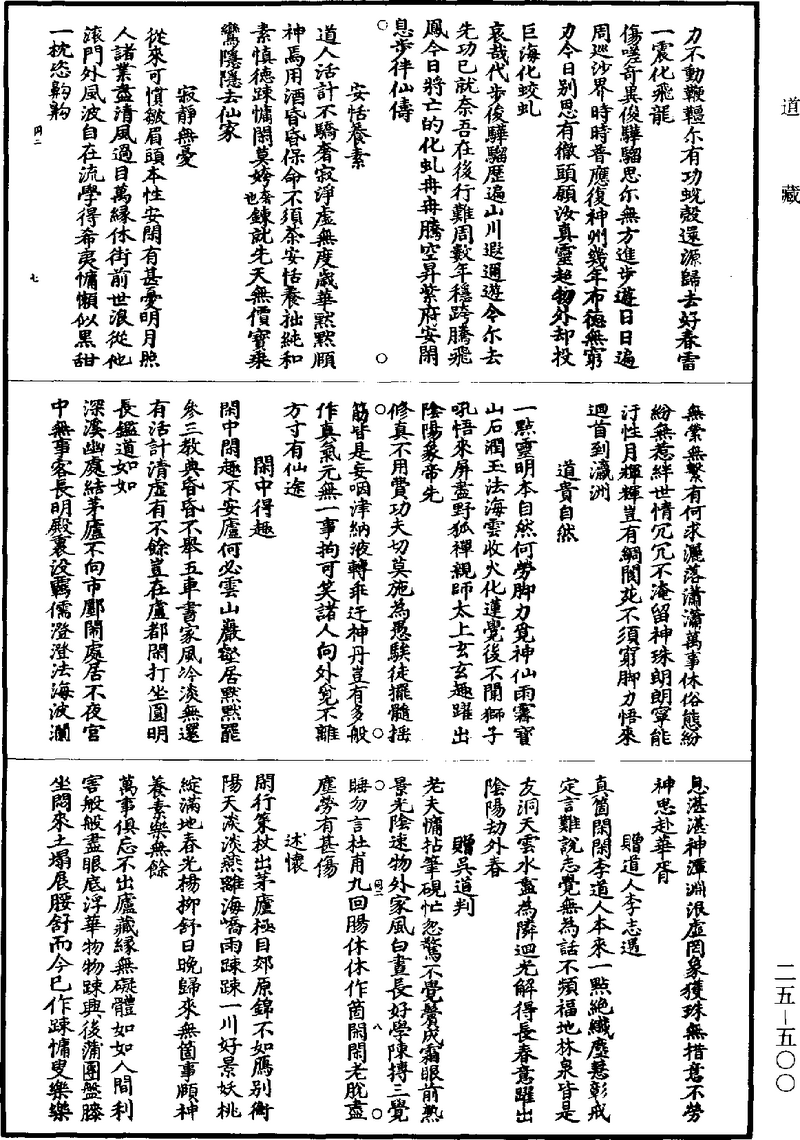 道藏
力不動鞭韁尔有功蛻殼還源歸去好春雷
一震化飛龍
傷嗟奇異俊驊騮思尔無方進步遊日日遍
周巡沙界時時普應復神州幾年布德無窮
力今日別思有徹頭願汝真靈超物外却投
巨海化蛟虬
哀哉代步俊驊騮歷遍山川遐邇遊令尔去
先功已就奈吾在後行難周數年穩跨騰飛
鳳今日將亡的化虬冉冉騰空昇紫府安閑
息步伴仙儔
安恬養素
道人活計不驕奢寂淨虛無度歲華黙黙頤
神焉用酒昏昏保命不須茶安恬養拙純和
素慎德踈慵閑莫誇也奢鍊就先天無價寶乘
鸞隱隱去仙家
寂靜無憂
從來可慣皺眉頭本性安閑有甚憂明月照
人諸業盡清風過目萬緣休街前世浪從他
滾門外風波自在流學得希夷慵懶似黒甜
一枕恣齁齁
無業無繫有何求灑落瀟瀟萬事休俗態紛
紛無惹絆世情冗冗不淹留神珠朗朗寧能
汙性月輝輝豈有網閻死不須窮脚力悟來
迴首到瀛洲
道貴自然
一點靈明本自然何勞脚力覓神仙雨霽寶
山石潤玉法海雲收火化蓮覺後不聞獅子
吼悟來屏盡野狐禪親師太上玄玄趣躍出
陰陽象帝先
修真不用費功夫切莫施為愚騃徒擺髓揺
筋皆是妄咽津納液轉乖迂神丹豈有多般
作真氣元無一事拘可笑諸人向外覓不離
方寸有仙途
閑中得趣
閑中閑趣不安廬何必雲山巖壑居黙黙罷
參三教典昏昏不舉五車書家風冷淡無還
有活計清虛有不餘豈在廬都閑打坐圓明
長鑑道如如
深溪幽處結茅廬不向市鄽鬧處居不夜宮
中無事客長明殿裏没羈儒澄澄法海波瀾
息湛湛神潭淵浪虛罔象獲珠無措意不勞
神思赴華胥
贈道人李志遇
真箇閑閑李道人本來一點絶纖塵慧彰戒
定言難說志覺無為話不頻福地林泉皆是
友洞天雲水盡為隣迴光解得長春意躍出
陰陽劫外春
贈吳道判
老夫慵拈筆硯忙忽驚不覺鬢成霜眼前熱
景光陰速物外家風白晝長好學陳摶三覺
睡勿言杜甫九回腸休休作箇閑閑老脫盡
塵勞有甚傷
述懷
閑行策杖出茅廬極目郊原錦不如鴈別衡
陽天淡淡燕離海嶠雨踈踈一川好景妖桃
綻滿地春光楊柳舒日晚歸來無箇事頤神
養素樂無餘
萬事俱忘不出廬藏緣無礙體如如人間利
害般般盡眼底浮華物物踈興後蒲團盤膝
坐悶來土塌展腰舒而今已作踈慵叟樂樂
二五－五〇〇